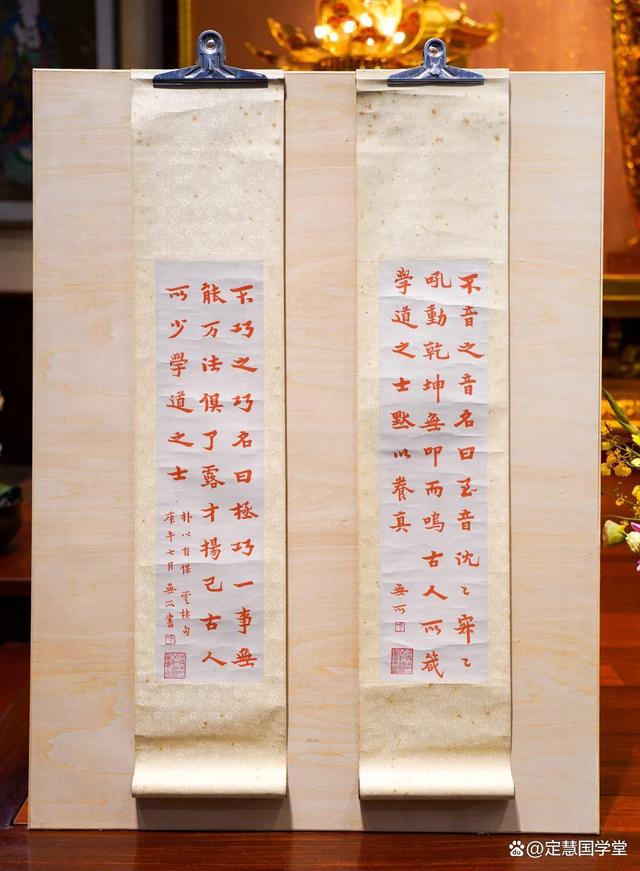 不音之音名曰至音沈〻寂〻
吼動乾坤無叩而鳴古人所箴
學道之士默以養真
無所
不巧之巧名曰極巧一事無
能万法俱了露才揚己古人
所少學道之士
朴以自保 雲棲句
庚午七月 無所書
@定慧国学堂